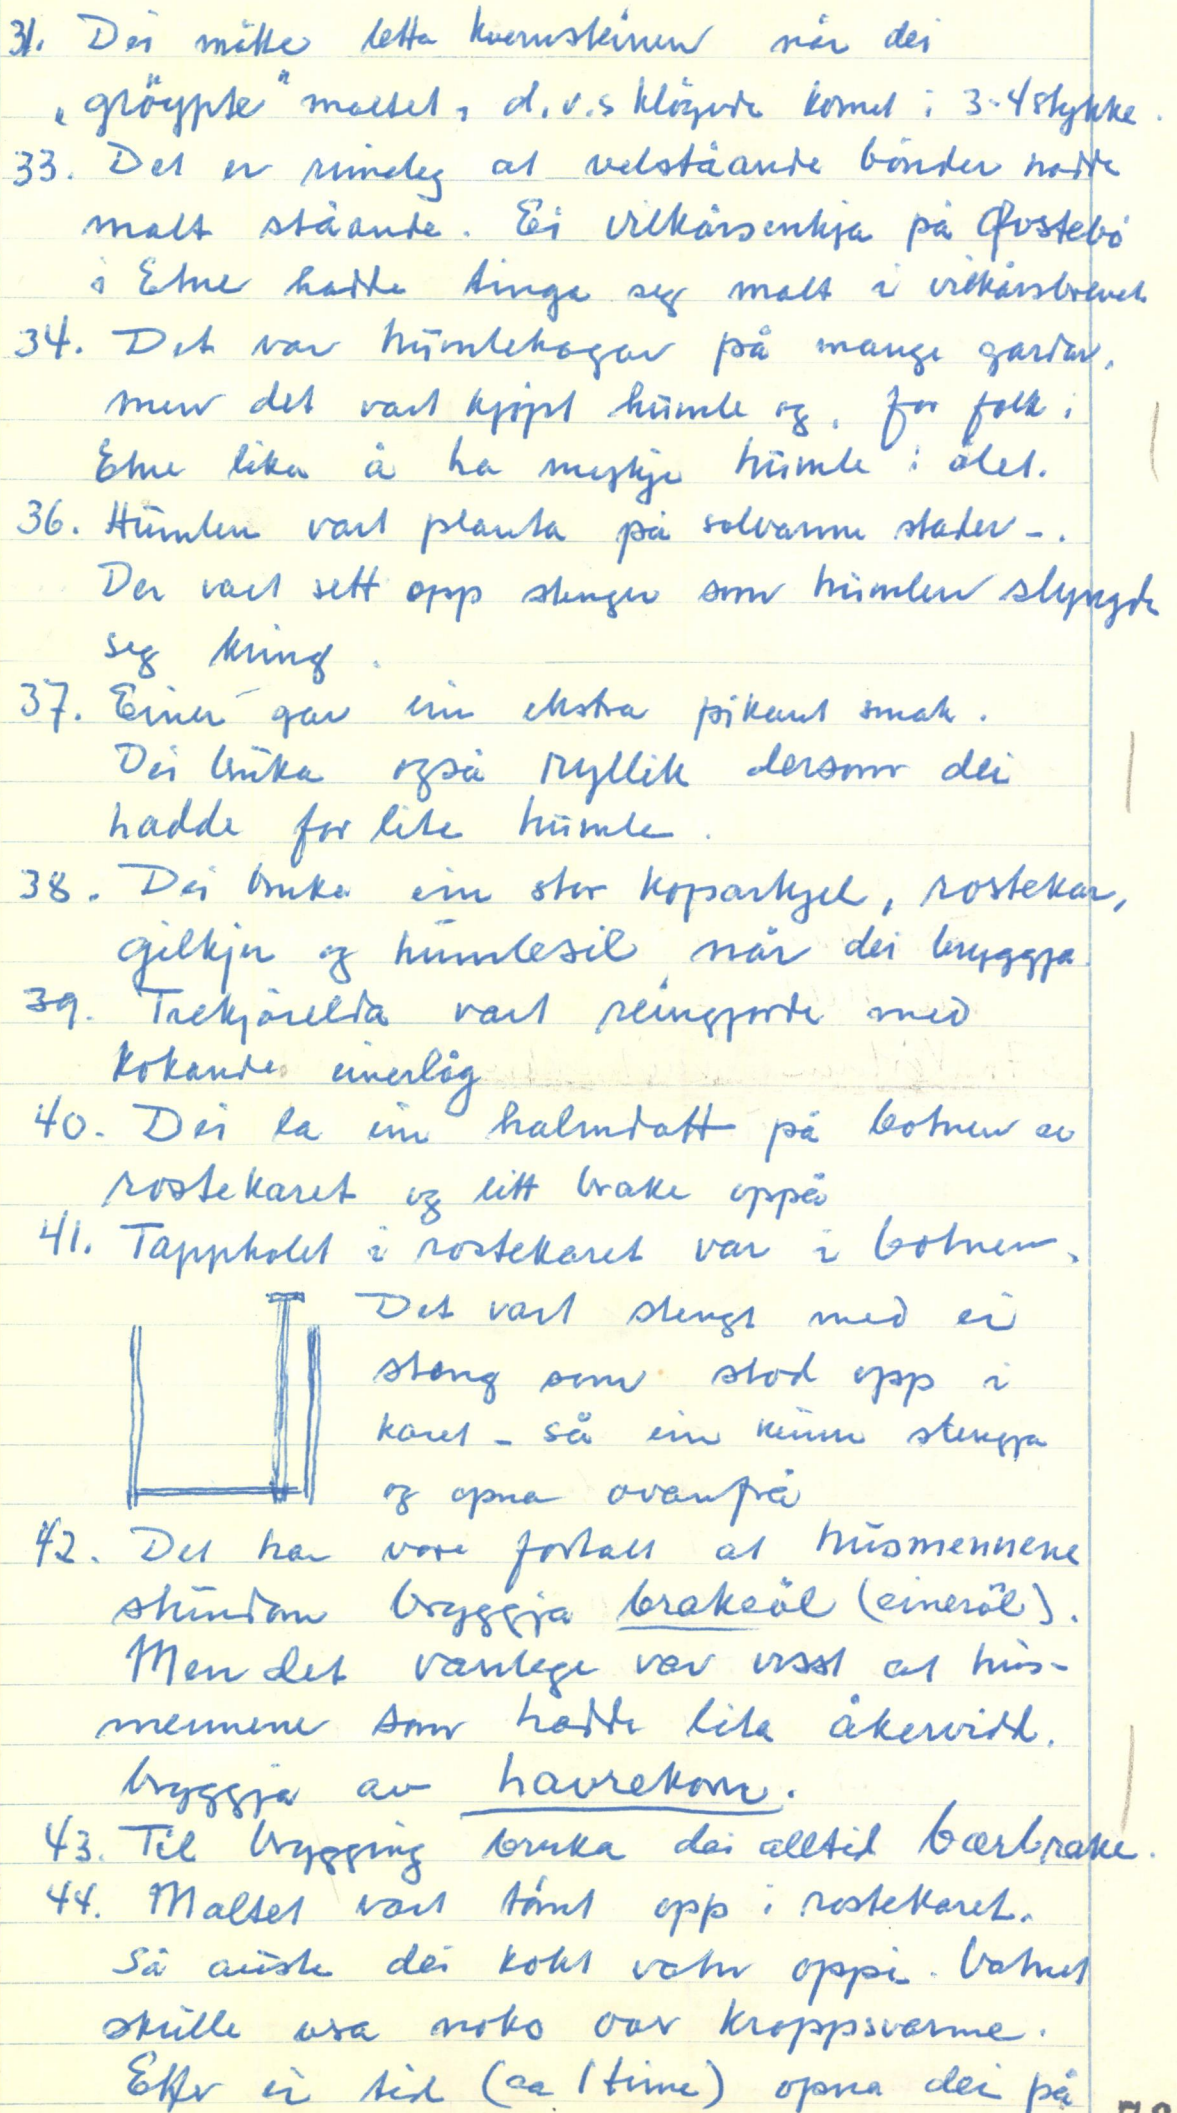 31. Dei måtte letta kvernsteinen når dei
„gröypte" maltet, d.v.s kløyvde kornet i 3-4 stykke.
33. Det er rimeleg at velståande bönder hadde
malt ståande. Ei vilkårsenkja på Østebö
i Etne hadde tinga seg malt i vilkårsbrevet
34. Det var humlehagar på mange gardar,
men det vart kjøpt humle og, for folk i
Etne lika å ha mykje humle i ølet.
36. Humlen vart planta på solvarme stader -.
Der vart sett opp stenger som humlen slyngde
seg kring.
37. Einer gav ein ekstra pikant smak.
Dei bruka også ryllik dersom dei
hadde for lite humle.
38. Dei bruka ein stor koparkjel, rostekar,
gilkjer og humlesil når dei bryggja
39. Trekjörelda vart reingjorde med
kokande einerlåg
40. Dei la ein halmdott på botnen av
rostekaret og litt brake oppå
41. Tappholet i rostekaret var i botnen.
Det vart stengt med ei
stong som stod opp i
karet - så ein kunn stengja
og opna ovanfrå
42. Det har vore fortalt at husmennene
stundom bryggja brakeöl (eineröl).
Men det vanlege var visst at hus-
mennene som hadde lita åkervidd,
bryggja av havrekorn.
43. Til brygging bruka dei alltid bærbrake.
44. Maltet vart tömt opp i rostekaret.
Så auste dei kokt vatn oppi. Vatnet
skulle vera noko over kroppsvarme.
Etter ei tid (ca 1 time) opna dei på